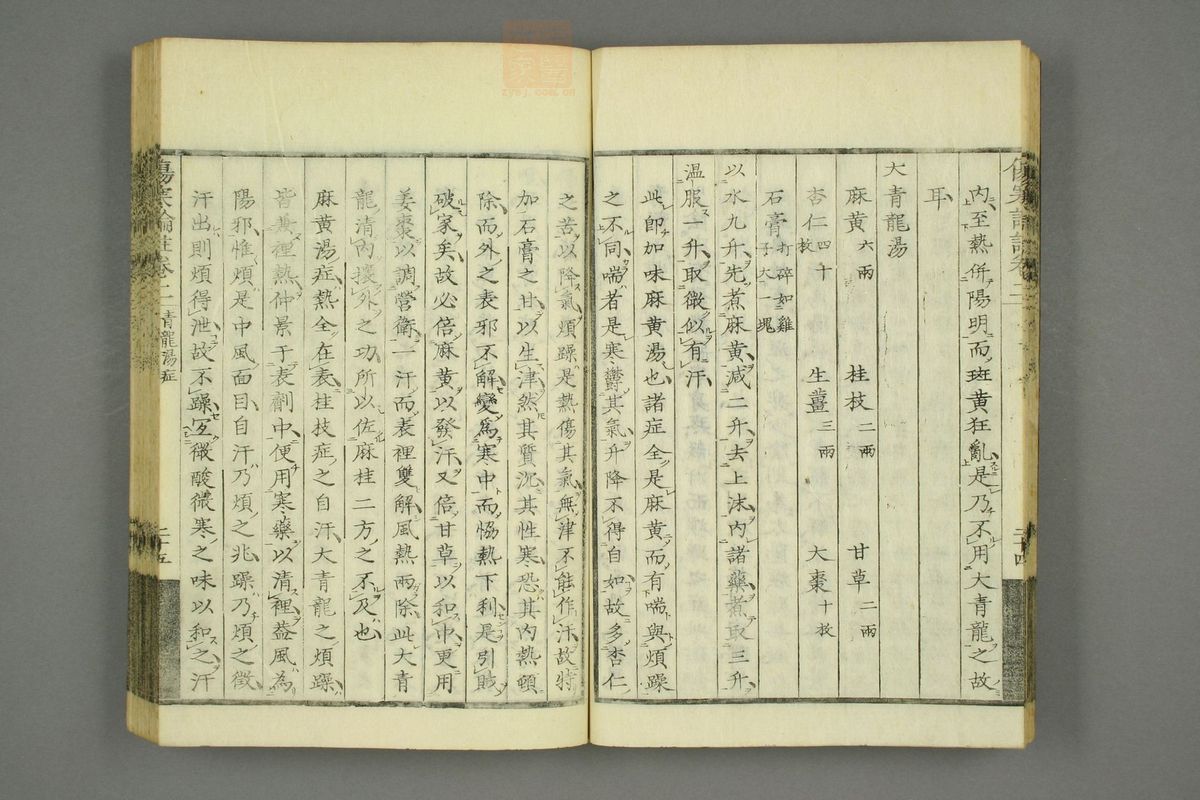 內至熱併陽明而斑黃狂亂是乃不用大青龍之故
耳
大青龍湯
麻黃六兩 桂枝二兩 甘草二兩
杏仁四十枚 生薑三兩 大棗十枚
石膏打碎如雞子大一塊
以水九升先煮麻黃減二升去上沫內諸藥煮取三升
温服一升取微似有汗
此卽加味麻黃湯也諸症全是麻黃而有喘與煩躁
之不同喘者是寒鬱其氣升降不得自如故多杏仁
之苦以降氣煩躁是熱傷其氣無津不能作汗故特
加石膏之甘以生津然其質沉其性寒恐其內熱頓
除而外之表邪不解變爲寒中而恊熱下利是引賊
破家矣故必倍麻黃以發汗又倍甘草以和中更用
姜棗以調營衛一汗而表裡雙解風熱兩除此大青
龍清內攘外之功所以佐麻桂二方之不及也
麻黃湯症熱全在表桂技症之自汗大青龍之煩躁
皆兼裡熱仲景于表劑中便用寒藥以清裡葢風為
陽邪惟煩是中風面目自汗乃煩之兆躁乃煩之徵
汗出則煩得泄故不躁宜微酸微寒之味以和之汗
傷寒論註卷二 青龍湯症 二十五
zysj.com.cn